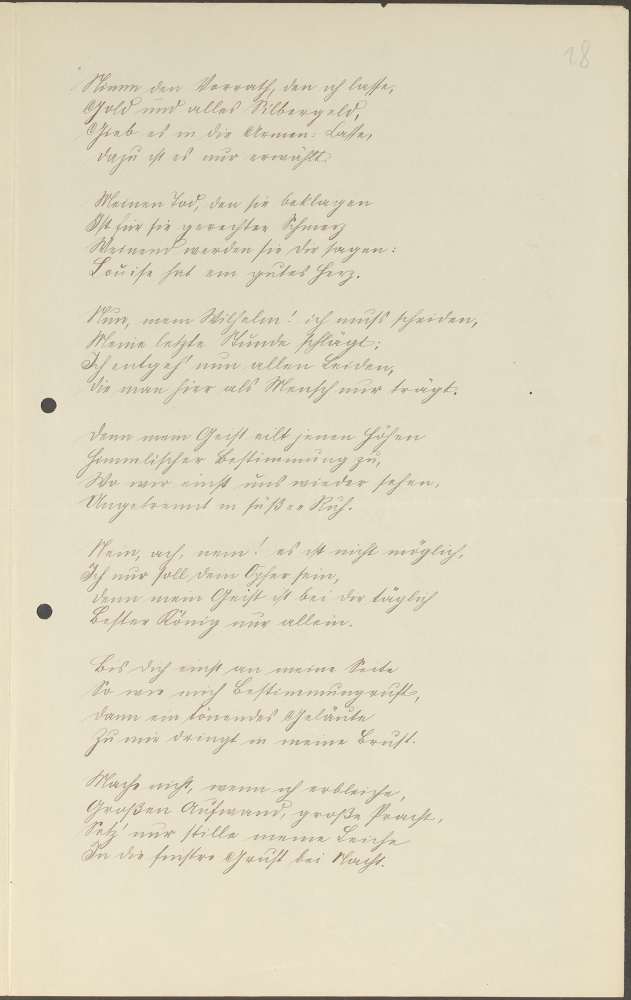 18
Nimm den Vorrath, den ich lasse,
Gold und alles Silbergeld,
Gieb es in die Armen: Casse,
Dazu ist es nur erwählt.
Meinen Tod, den sie beklagen
Ist für sie gerechter Schmerz
Weinend werden sie dir sagen:
Louise hat ein gutes Herz.
Nun, mein Wilhelm! ich muß scheiden,
Meine letzte Stunde schlägt;
Ich entgeh' nun allen Leiden,
Die man hier als Mensch nur trägt.
Denn mein Geist eilt jenen Höhen
Himmlischer Bestimmung zu,
Wo wir einst uns wieder sehen,
Ungetrennt in süßer Ruh.
Nein, ach, nein! es ist nicht möglich,
Ich nur soll dem Opfer sein,
Denn mein Geist ist bei dir täglich
Bester König nur allein.
Bis dich einst an meine Seite
So wie mich Bestimmung ruft,
Dann ein tönendes Geläute
Zu mir dringt in meine Brust.
Mache nicht, wenn ich erbleiche,
Großen Aufwand, große Pracht,
Setz' nur stille meine Leiche
In die finstre Gruft bei Nacht.